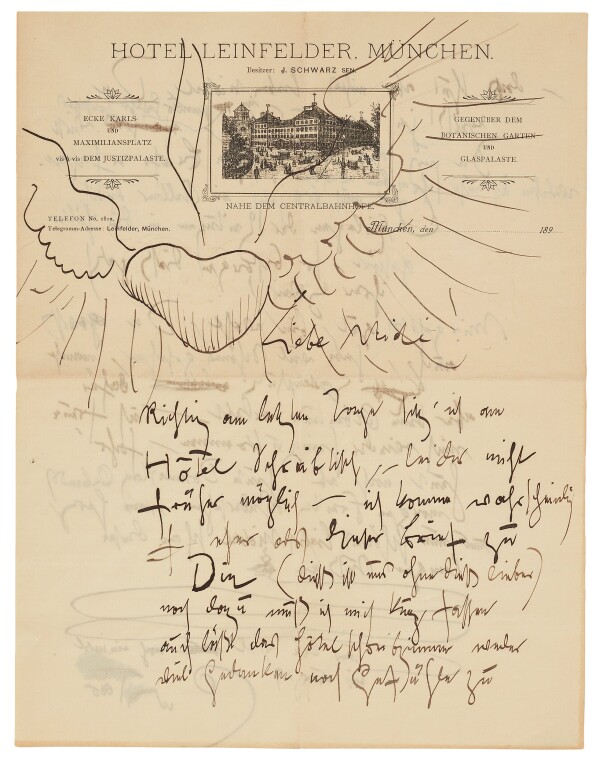 HOTEL LEINFELDER, MÜNCHEN.
Besitzer: J. SCHWARZ SEN.
ECKE KARLS
UND
MAXIMILIANSPLATZ
vis-à-vis DEM JUSTIZPALASTE.
GEGENÜBER DEM
BOTANISCHEN GARTEN
UND
GLASPALASTE.
NAHE DEM CENTRALBAHNHOFE.
TELEFON No.
Telegramm-Adresse: Leinfelder, München.
München, den 189
Liebe Midi
Richtig am letzten Tage sitz' ich am
Hôtel Schreibtisch, – leider nicht
früher möglich – ich komme wahrscheinlich
eher als dieser Brief zu
Dir (dieß ist mir ohnedieß lieber)
noch dazu muß ich mich kurz fassen
auch läßt das Hôtelschreibzimmer weder
viel Gedanken noch Gefühle zu